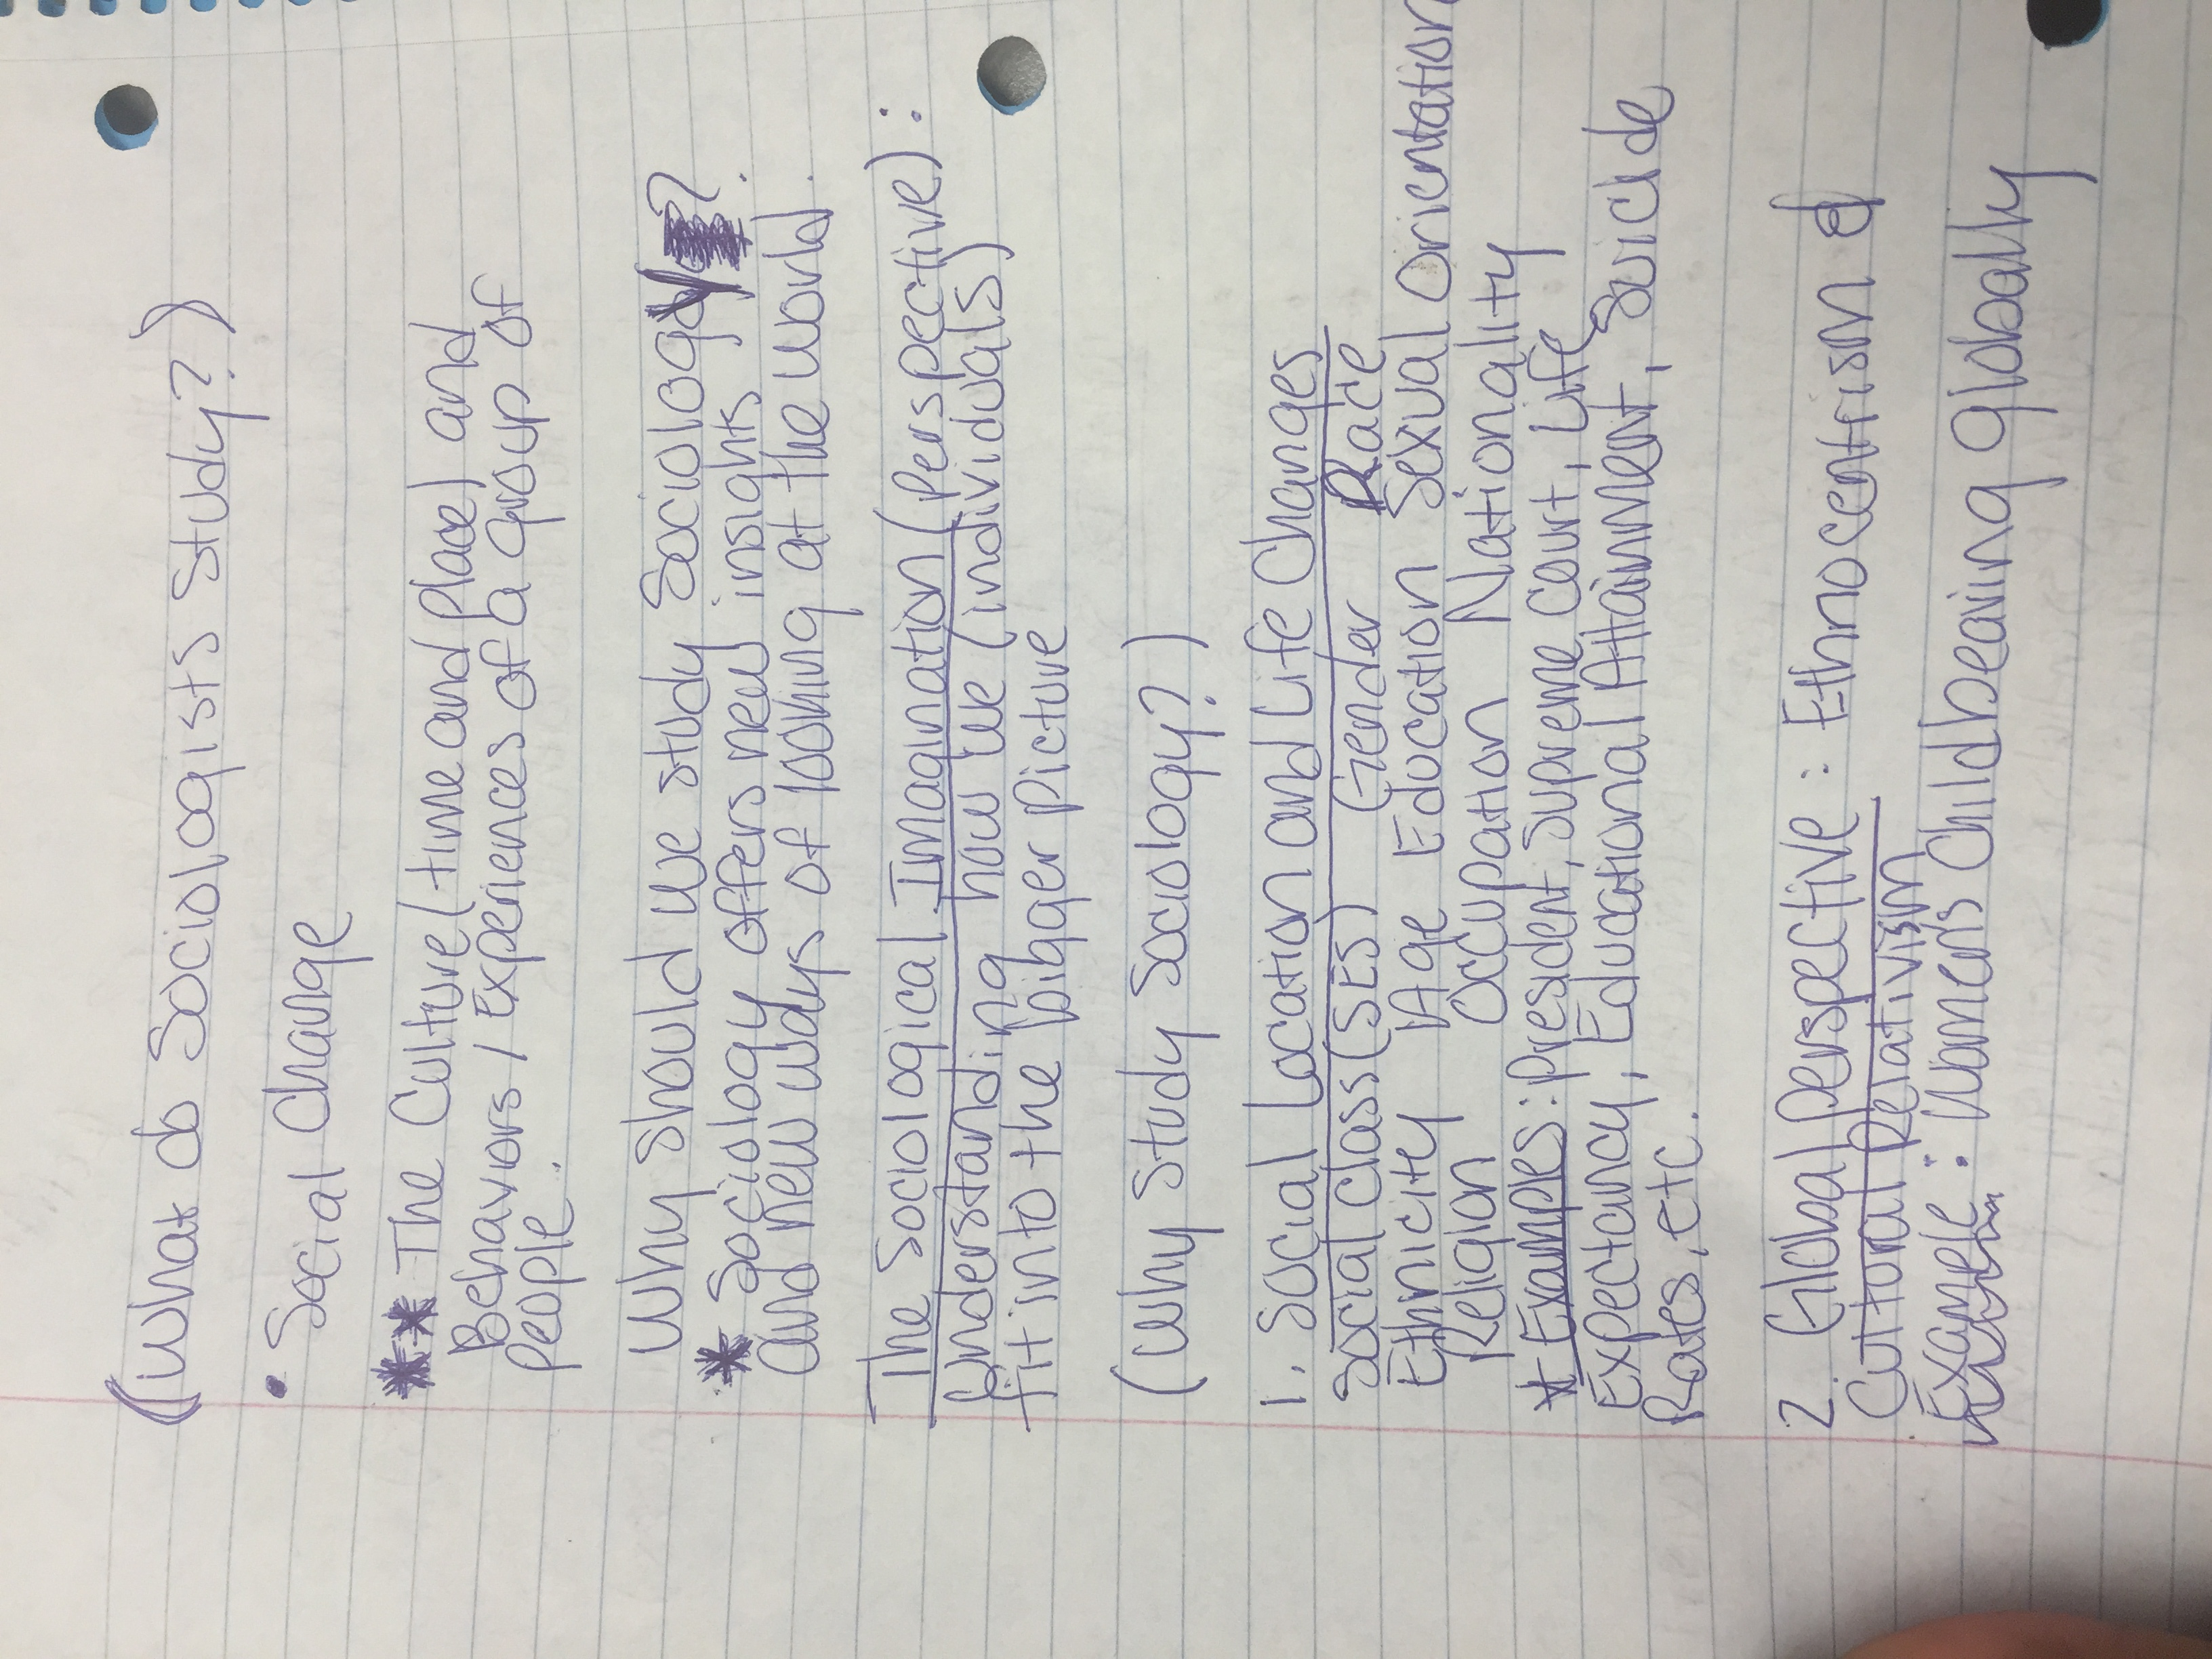 (What do Sociologists Study?)
• Social Change
** The Culture (time and place) and
Behaviors / Experiences of a group of
people.
Why should we study Sociology?
* Sociology offers new insights
and new ways of looking at the world.
The Sociological Imagination (perspective):
Understanding how we (individuals)
fit into the bigger picture
(Why study Sociology?)
1. Social Location and Life Changes
Social Class (SES) Gender Race
Ethnicity Age Education Sexual Orientation
Religion Occupation Nationality
* Examples: President, Supreme Court, Life
Expectancy, Educational Attainment, Suicide
Rates, etc.
2. Global perspective: Ethnocentrism &
Cultural Relativism
Example: Women's Childbearing globally